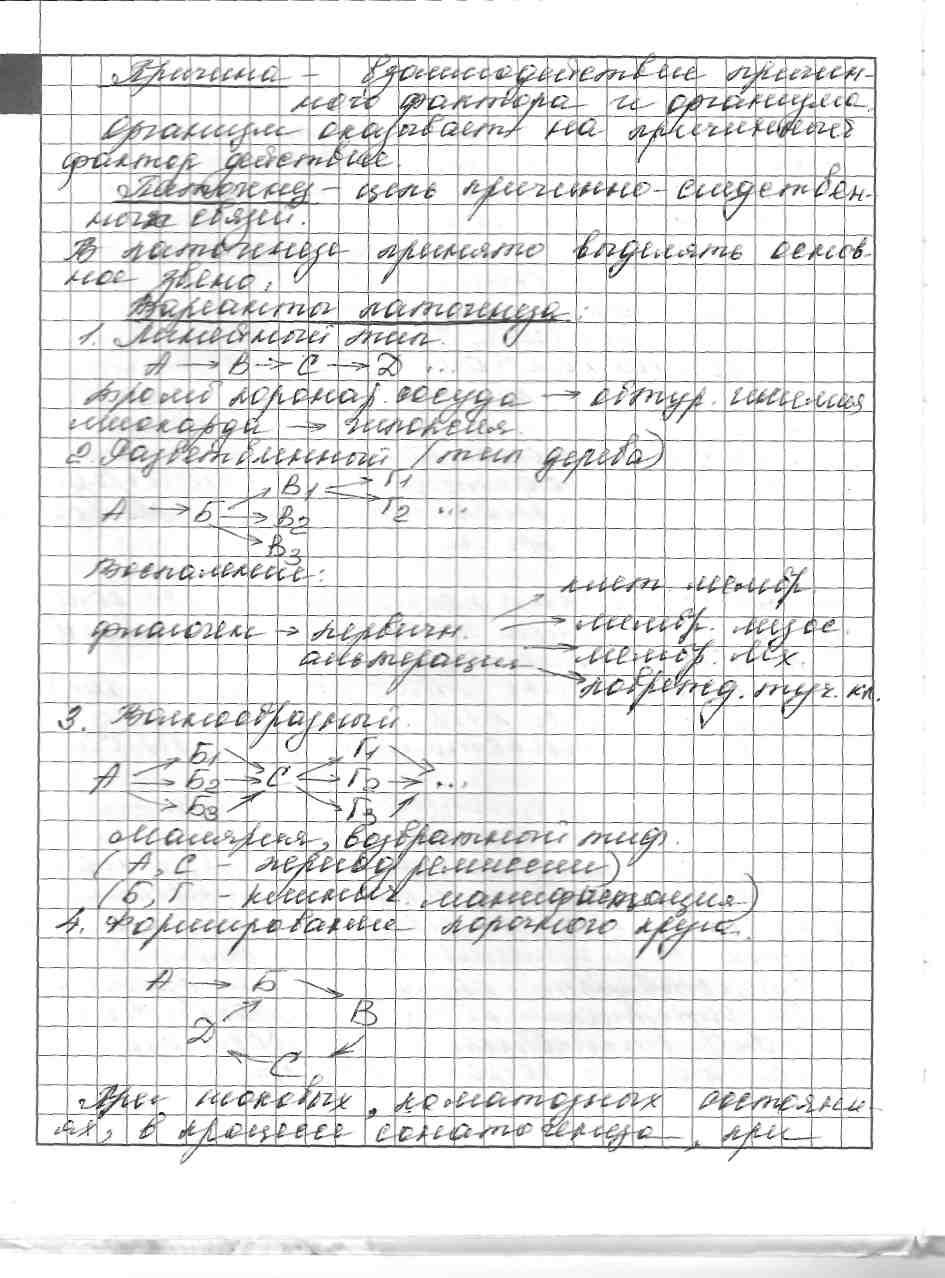 Причина – взаимодействие причин-
ного фактора и организма.
Организм оказывает на причинный
фактор действие.
Патогенез – цепь причинно-следствен-
ных связей.
В патогенезе принято выделять основ-
ное звено.
Варианты патогенеза:
1. Линейный тип.
А → В → С → Д ...
тромб коронар. сосуда → обтур. ишемия
миокарда → гипоксия.
2. Разветвленный (тип дерева)
В1 → Г1
А → Б → В2 Г2 ...
В3
Воспаление:
клет. мембр.
флогоген → первичн. → мембр. лизос.
альтерация → мембр. мх.
поврежд. туч. кл.
3. Волнообразный.
Б1 Г1
А → Б2 → С → Г2 → ...
Б3 Г3
Малярия, возвратный тиф.
(А, С – период ремиссии)
(Б, Г – клинич. манифестация)
4. Формирование порочного круга.
А → Б
Д В
С
При шоковых, коматозных состояни-
ях, в процессе саногенеза, при